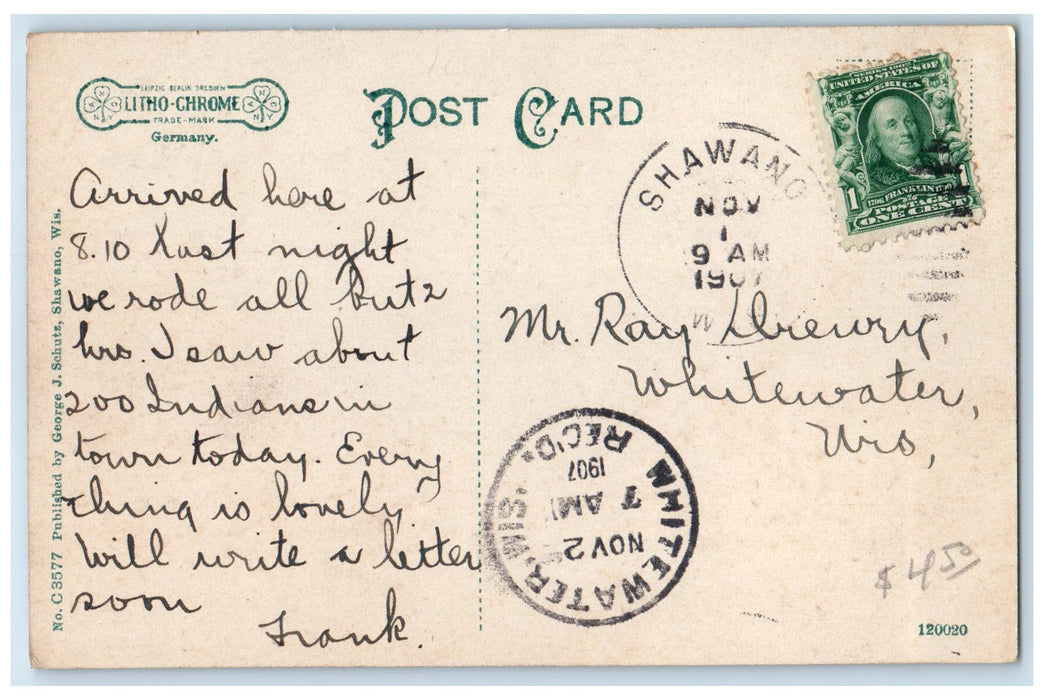 LEIPZIG BERLIN DRESDEN
LITHO-CHROME
TRADE-MARK
Germany.
POST CARD
SERIES 1902
UNITED STATES OF
AMERICA
1706 FRANKLIN 1790
POSTAGE
1 ONE CENT 1
SHAWANO
NOV
1
9 AM
1907
W
Arrived here at
8.10 last night
we rode all but 2
hrs. I saw about
200 Indians in
town today. Every
thing is lovely
Will write a letter
soon
Frank.
Mr. Ray Drewry,
Whitewater,
Wis,
WHITEWATER, WIS.
NOV 2
7 AM
1907
REC'D.
$4.50
120020
No. C3577 Published by George J. Schutz, Shawano, Wis.